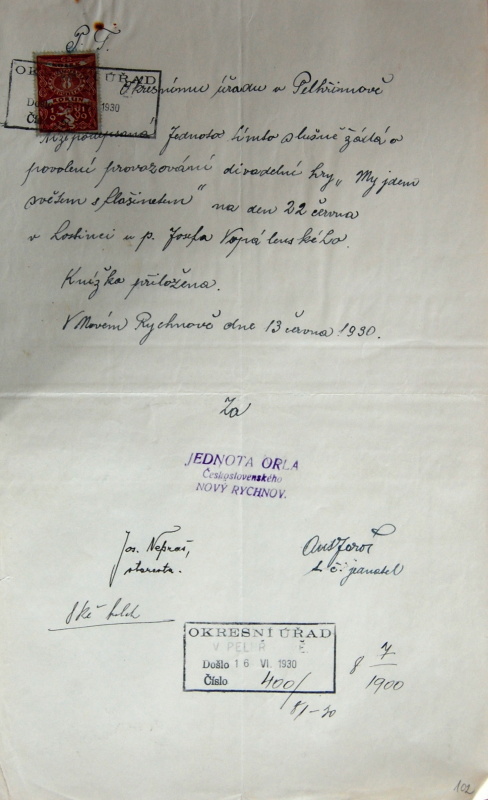 P. T.
OKRESNÍ ÚŘAD
Došlo VI 1930
Okresnímu úřadu v Pelhřimově
Níže podepsaná Jednota tímto slušně žádá o
povolení provozování divadelní hry „My jdem
světem s flašinetem“ na den 22 června
v hostinci u p. Josefa Vopálenského.
Knížka přiložena.
V Novém Rychnově dne 13 června 1930.
Za
JEDNOTA ORLA
Československého
NOVÝ RYCHNOV.
Jos. Nepraš,
starosta.
Ant Jaroš
t. č. jednatel
OKRESNÍ ÚŘAD
V PELHŘ Ě.
Došlo 16 VI. 1930
Číslo 400/
8 7
1900
81-30
102